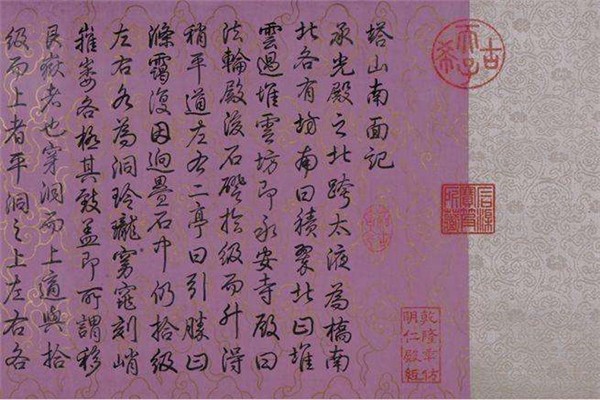 塔山南面記
承光殿之北跨太液為橋南
北各有坊南曰積翠北曰堆
雲過堆雲坊即永安寺殿曰
法輪殿後石磴拾級而升得
稍平道左右二亭曰引勝曰
滌靄復因迴疊石中仍拾級
左右各為洞玲瓏窈窕刻峭
各極其致蓋即所謂移
艮嶽者也穿洞而上道與拾
級而上者平洞之上左右各
古希天子
乾隆年仿
明仁殿紙